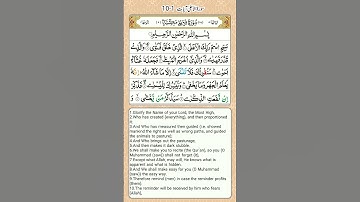 سورۃ الاعلیٰ آیات 1-10
بِسْمِ اللّٰهِ الرَّحْمٰنِ الرَّحِيْمِ
سَبِّحِ اسْمَ رَبِّكَ الْاَعْلَى الَّذِيْ خَلَقَ فَسَوّٰى وَالَّذِيْ
قَدَّرَ فَهَدٰى وَالَّذِيْ اَخْرَجَ الْمَرْعٰى فَجَعَلَهٗ غُثَآءً
اَحْوٰى سَنُقْرِئُكَ فَلَا تَنْسٰى اِلَّا مَا شَآءَ اللّٰهُ اِنَّهٗ
يَعْلَمُ الْجَهْرَ وَمَا يَخْفٰى وَنُيَسِّرُكَ لِلْيُسْرٰى فَذَكِّرْ
اِنْ نَّفَعَتِ الذِّكْرٰى سَيَذَّكَّرُ مَنْ يَّخْشٰى
1.Glorify the Name of your Lord, the Most High,
2.Who has created (everything), and then proportioned it
3.And Who has measured then guided (i.e. showed mankind the right as well as wrong paths, and guided the animals to pasture);
4.And Who brings out the pasturage,
5.And then makes it dark stubble.
6.We shall make you to recite (the Qur'an), so you (O Muhammad (saw)) shall not forget (it),
7.Except what Allah, may will, He knows what is apparent and what is hidden.
8.And We shall make easy for you (O Muhammad (saw)) the easy way
9.Therefore remind (men) in case the reminder profits (them).
10.The reminder will be received by him who fears (Allah),